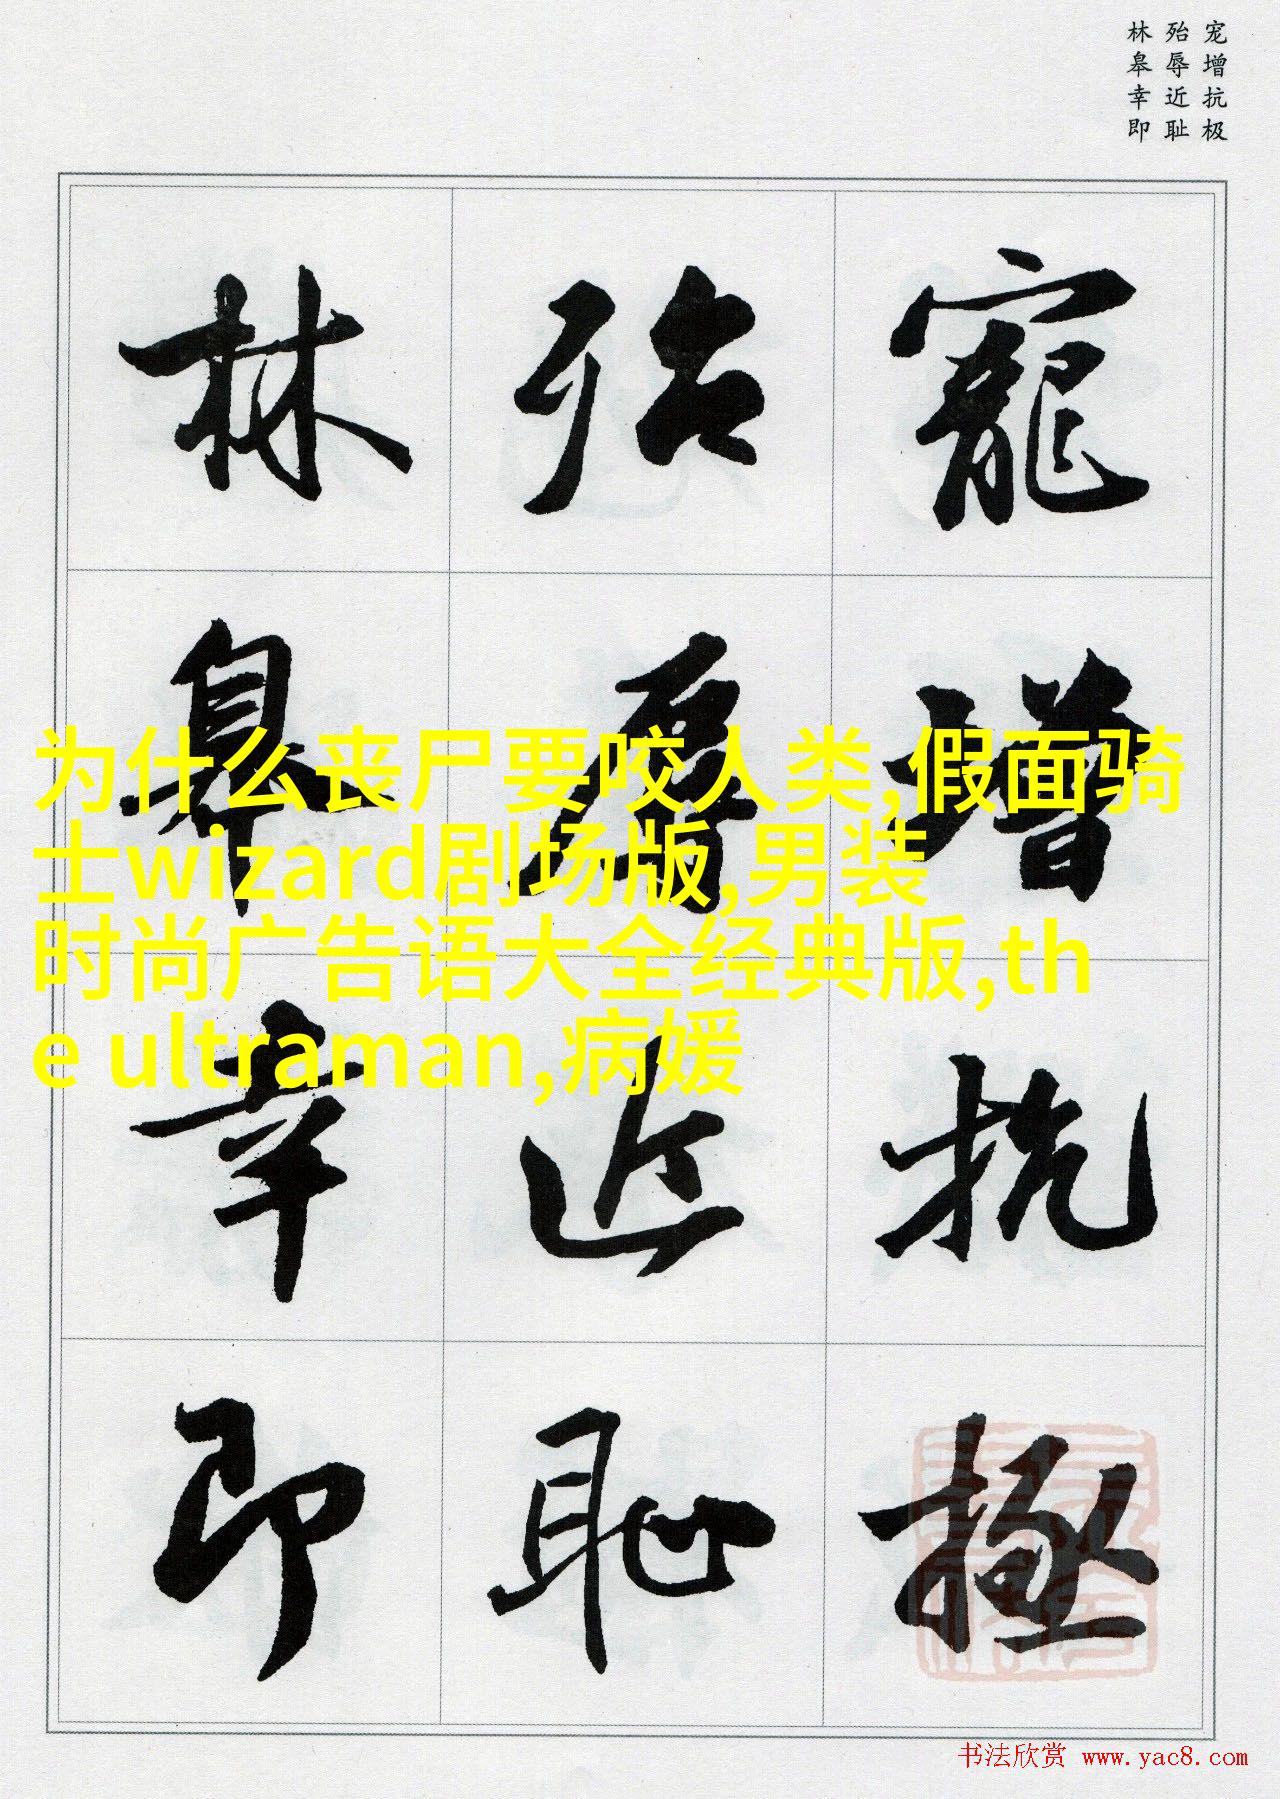 宠增抗极
殆辱近耻
林皋幸即
寵增抗極
殆辱近恥
林皋幸即
为什么丧尸要咬人类,假面骑
士wizard剧场版,男装
时尚广告语大全经典版,th
e ultraman,病媛
书法欣赏 www.yac8.com